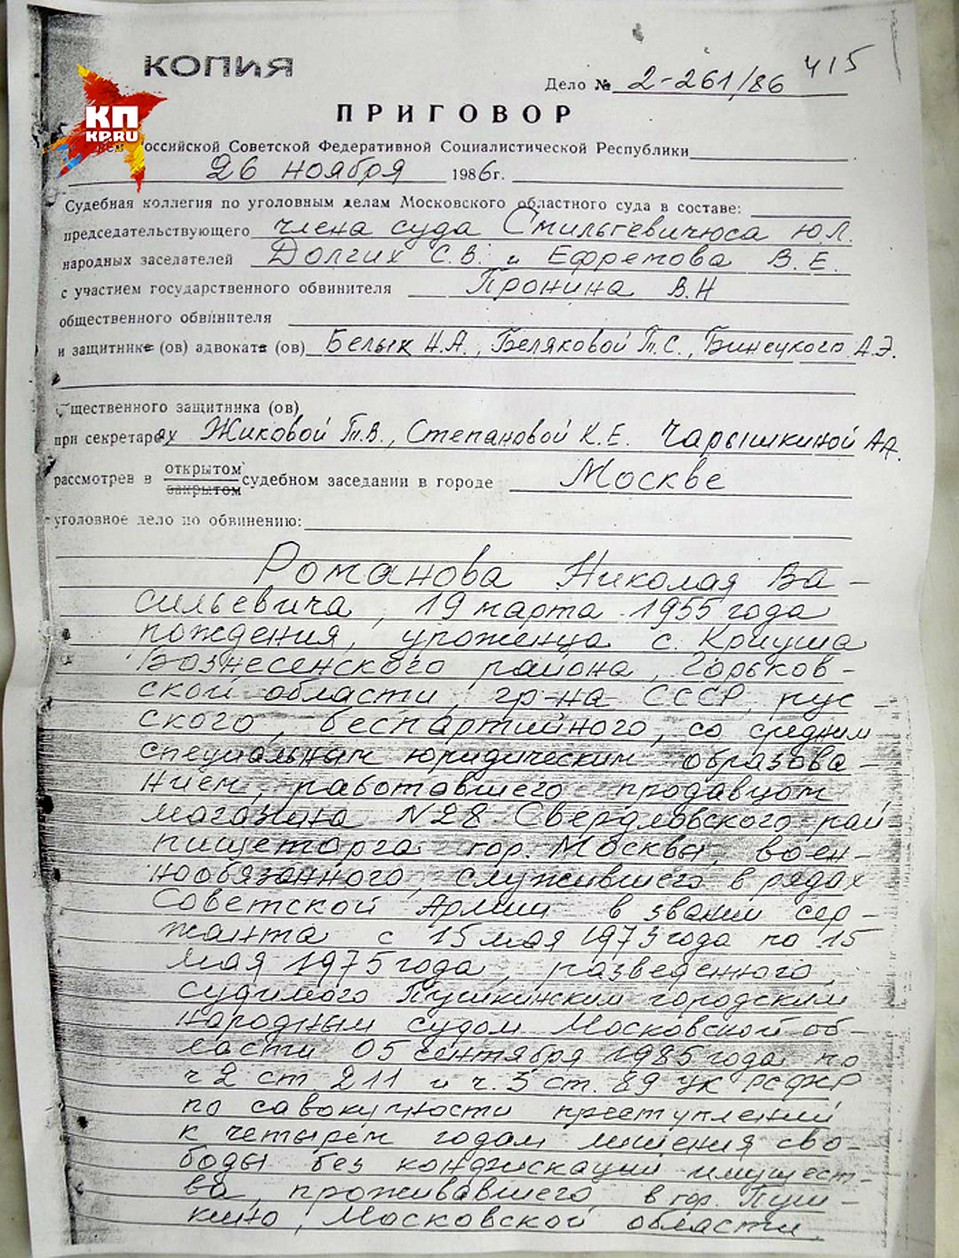 КОПИЯ
415
Дело № 2-261/86
ПРИГОВОР
КП
KP.RU
Российской Советской Федеративной Социалистической Республики
26 ноября 1986г.
Судебная коллегия по уголовным делам Московского областного суда в составе:
председательствующего члена суда Смильгевичюса Ю.Л.
народных заседателей Долгих С.В. и Ефремова В.Е.
с участием государственного обвинителя Пронина В.Н
общественного обвинителя
и защитнике (ов) адвоката (ов) Белык Н.А., Беляковой Т.С., Бинецкого А.Э.
щественного защитника (ов)
при секретарях Жиковой Т.В., Степановой К.Е. Чарышкиной А.А.
открытом
рассмотрев в закрытом судебном заседании в городе Москве
уголовное дело по обвинению:
Романова Николая Ва-
сильевича, 19 марта 1955 года
рождения, уроженца с. Криуша
Вознесенского района, Горьков-
ской области, гр-на СССР, рус-
ского, беспартийного, со средним
специальным юридическим образова-
нием, работавшего продавцом
магазина №28 Свердловского рай
пищеторга гор. Москвы, воен-
нообязанного, служившего в рядах
Советской Армии в звании сер-
жанта с 15 мая 1973 года по 15
мая 1975 года, разведенного,
судимого Пушкинским городским
народным судом Московской об-
ласти 05 сентября 1985 года по
ч 2 ст 211 и ч. 3 ст. 89 УК РСФСР
по савокупности преступлений
к четырем годам лишения сво-
боды без конфискации имущест-
ва, проживавшего в гор. Пуш-
кино, Московской области